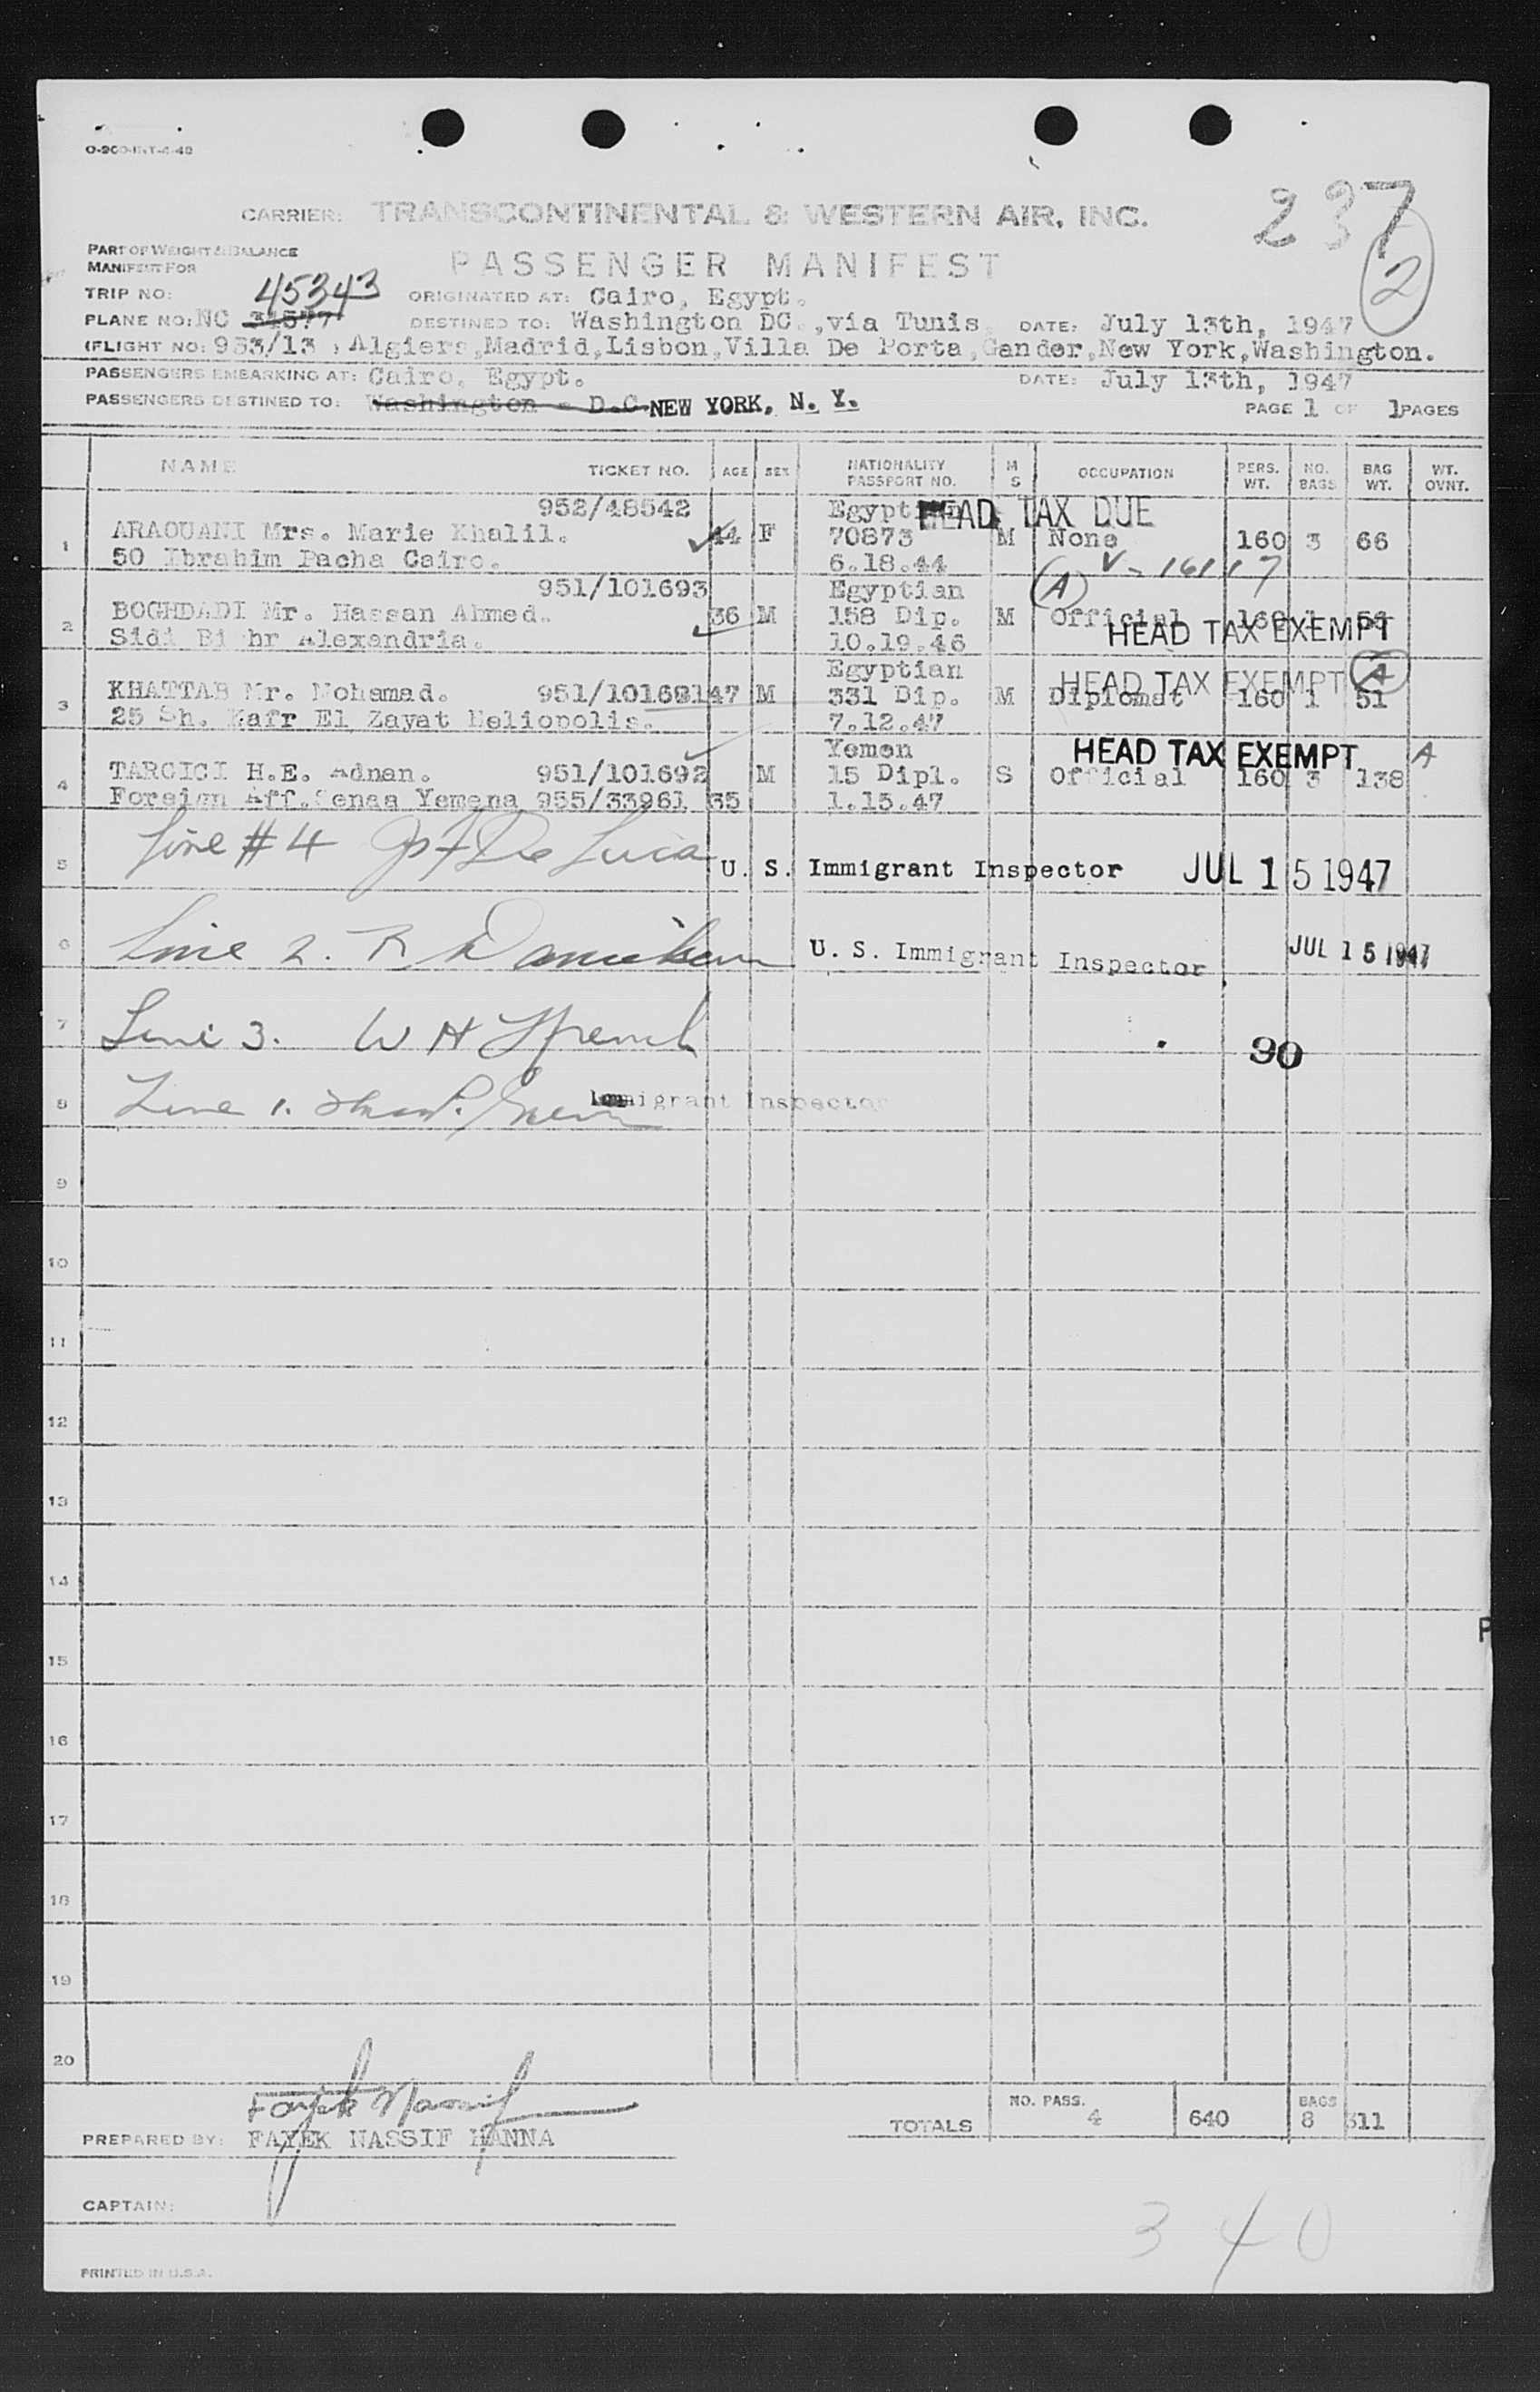 CARRIER: TRANSCONTINENTAL & WESTERN AIR, INC.
237
PART OF WEIGHT & BALANCE
MANIFEST FOR
PASSENGER MANIFEST
2
TRIP NO: 45343 ORIGINATED AT: Cairo, Egypt.
PLANE NO: NC 31577 DESTINED TO: Washington DC.,via Tunis, DATE: July 13th, 1947
(FLIGHT NO: 953/13 ) Algiers,Madrid,Lisbon,Villa De Porta,Gander,New York,Washington.
PASSENGERS EMBARKING AT: Cairo, Egypt. DATE: July 13th, 1947
PASSENGERS DESTINED TO: Washington - D.C. NEW YORK, N. Y. PAGE 1 OF 1 PAGES
NAME TICKET NO. AGE SEX NATIONALITY PASSPORT NO. M S OCCUPATION PERS. WT. NO. BAGS BAG WT. WT. OVNT.
952/48542 Egyptian HEAD TAX DUE
1 ARAOUANI Mrs. Marie Khalil. 44 F 70873 M None 160 3 66
50 Ibrahim Pacha Cairo. 6.18.44
951/101693 Egyptian (A)
2 BOGHDADI Mr. Hassan Ahmed. 36 M 158 Dip. M Official 160 1
Sidi Bi hr Alexandria. 10.19.46 HEAD TAX EXEMPT
Egyptian HEAD TAX EXEMPT (A)
3 KHATTAB Mr. Mohamad. 951/101691 47 M 331 Dip. M Diplomat 160 1 51
25 Sh. Kafr El Zayat Heliopolis. 7.12.47
Yemen HEAD TAX EXEMPT A
4 TARCICI H.E. Adnan. 951/101692 M 15 Dipl. S Official 160 3 138
Foreign Aff. Senaa Yemena 955/33961 35 1.15.47
5 Line #4 De Luca U. S. Immigrant Inspector JUL 15 1947
6 Line 2. U. S. Immigrant Inspector JUL 15 1947
7 Line 3. W H French 90
8 Line 1. Immigrant Inspector
9
10
11
12
13
14
15
16
17
18
19
20
Fayek Nassif
TOTALS NO. PASS. 4 640 BAGS 8 311
PREPARED BY: FAYEK NASSIF HANNA
CAPTAIN:
340
PRINTED IN U.S.A.